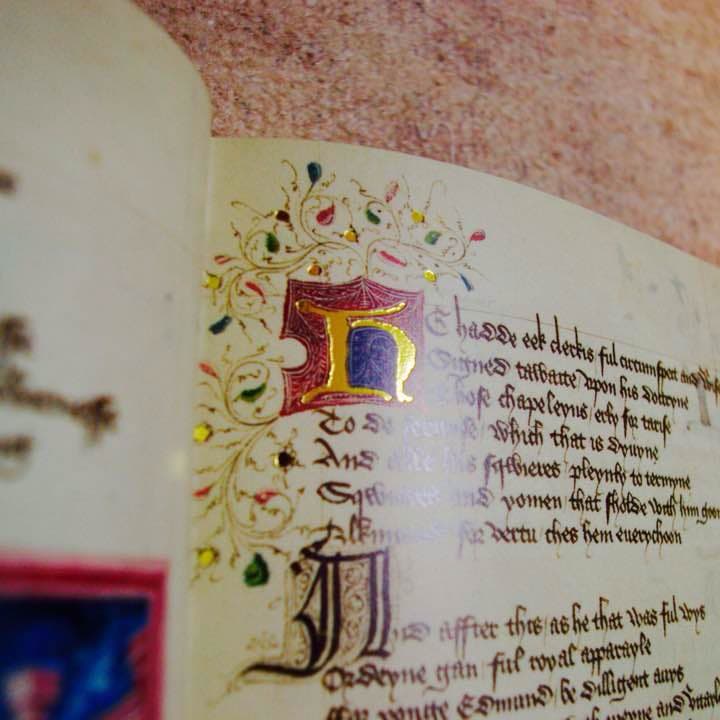 HE hadde eek clerkis ful circumspect and
Signed tawaite vpon his doctryne
Whose chapeleyns erly for tarise
To do seruyse which that is dyuyne
And alle his sqwieres pleynly to termyne
Sqwieres and yomen that sholde with hym goon
for vertu ches hem euerychoon
And affter this as he that was ful wys
Ordeyne gan ful royal apparayle
For yonge Edmund be dilligent auys
and vitayle